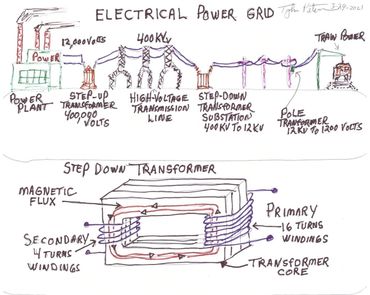 ELECTRICAL POWER GRID
12,000 VOLTS
400 KV
TRAIN POWER
POWER
POWER PLANT
STEP-UP
TRANSFORMER
400,000
VOLTS
HIGH-VOLTAGE
TRANSMISSION
LINE
STEP-DOWN
TRANSFORMER
SUBSTATION
400 KV TO 12 KV
POLE
TRANSFORMER
12 KV TO 1200 VOLTS
STEP DOWN TRANSFORMER
MAGNETIC
FLUX
PRIMARY
16 TURNS
WINDINGS
SECONDARY
4 TURNS
WINDINGS
TRANSFORMER
CORE